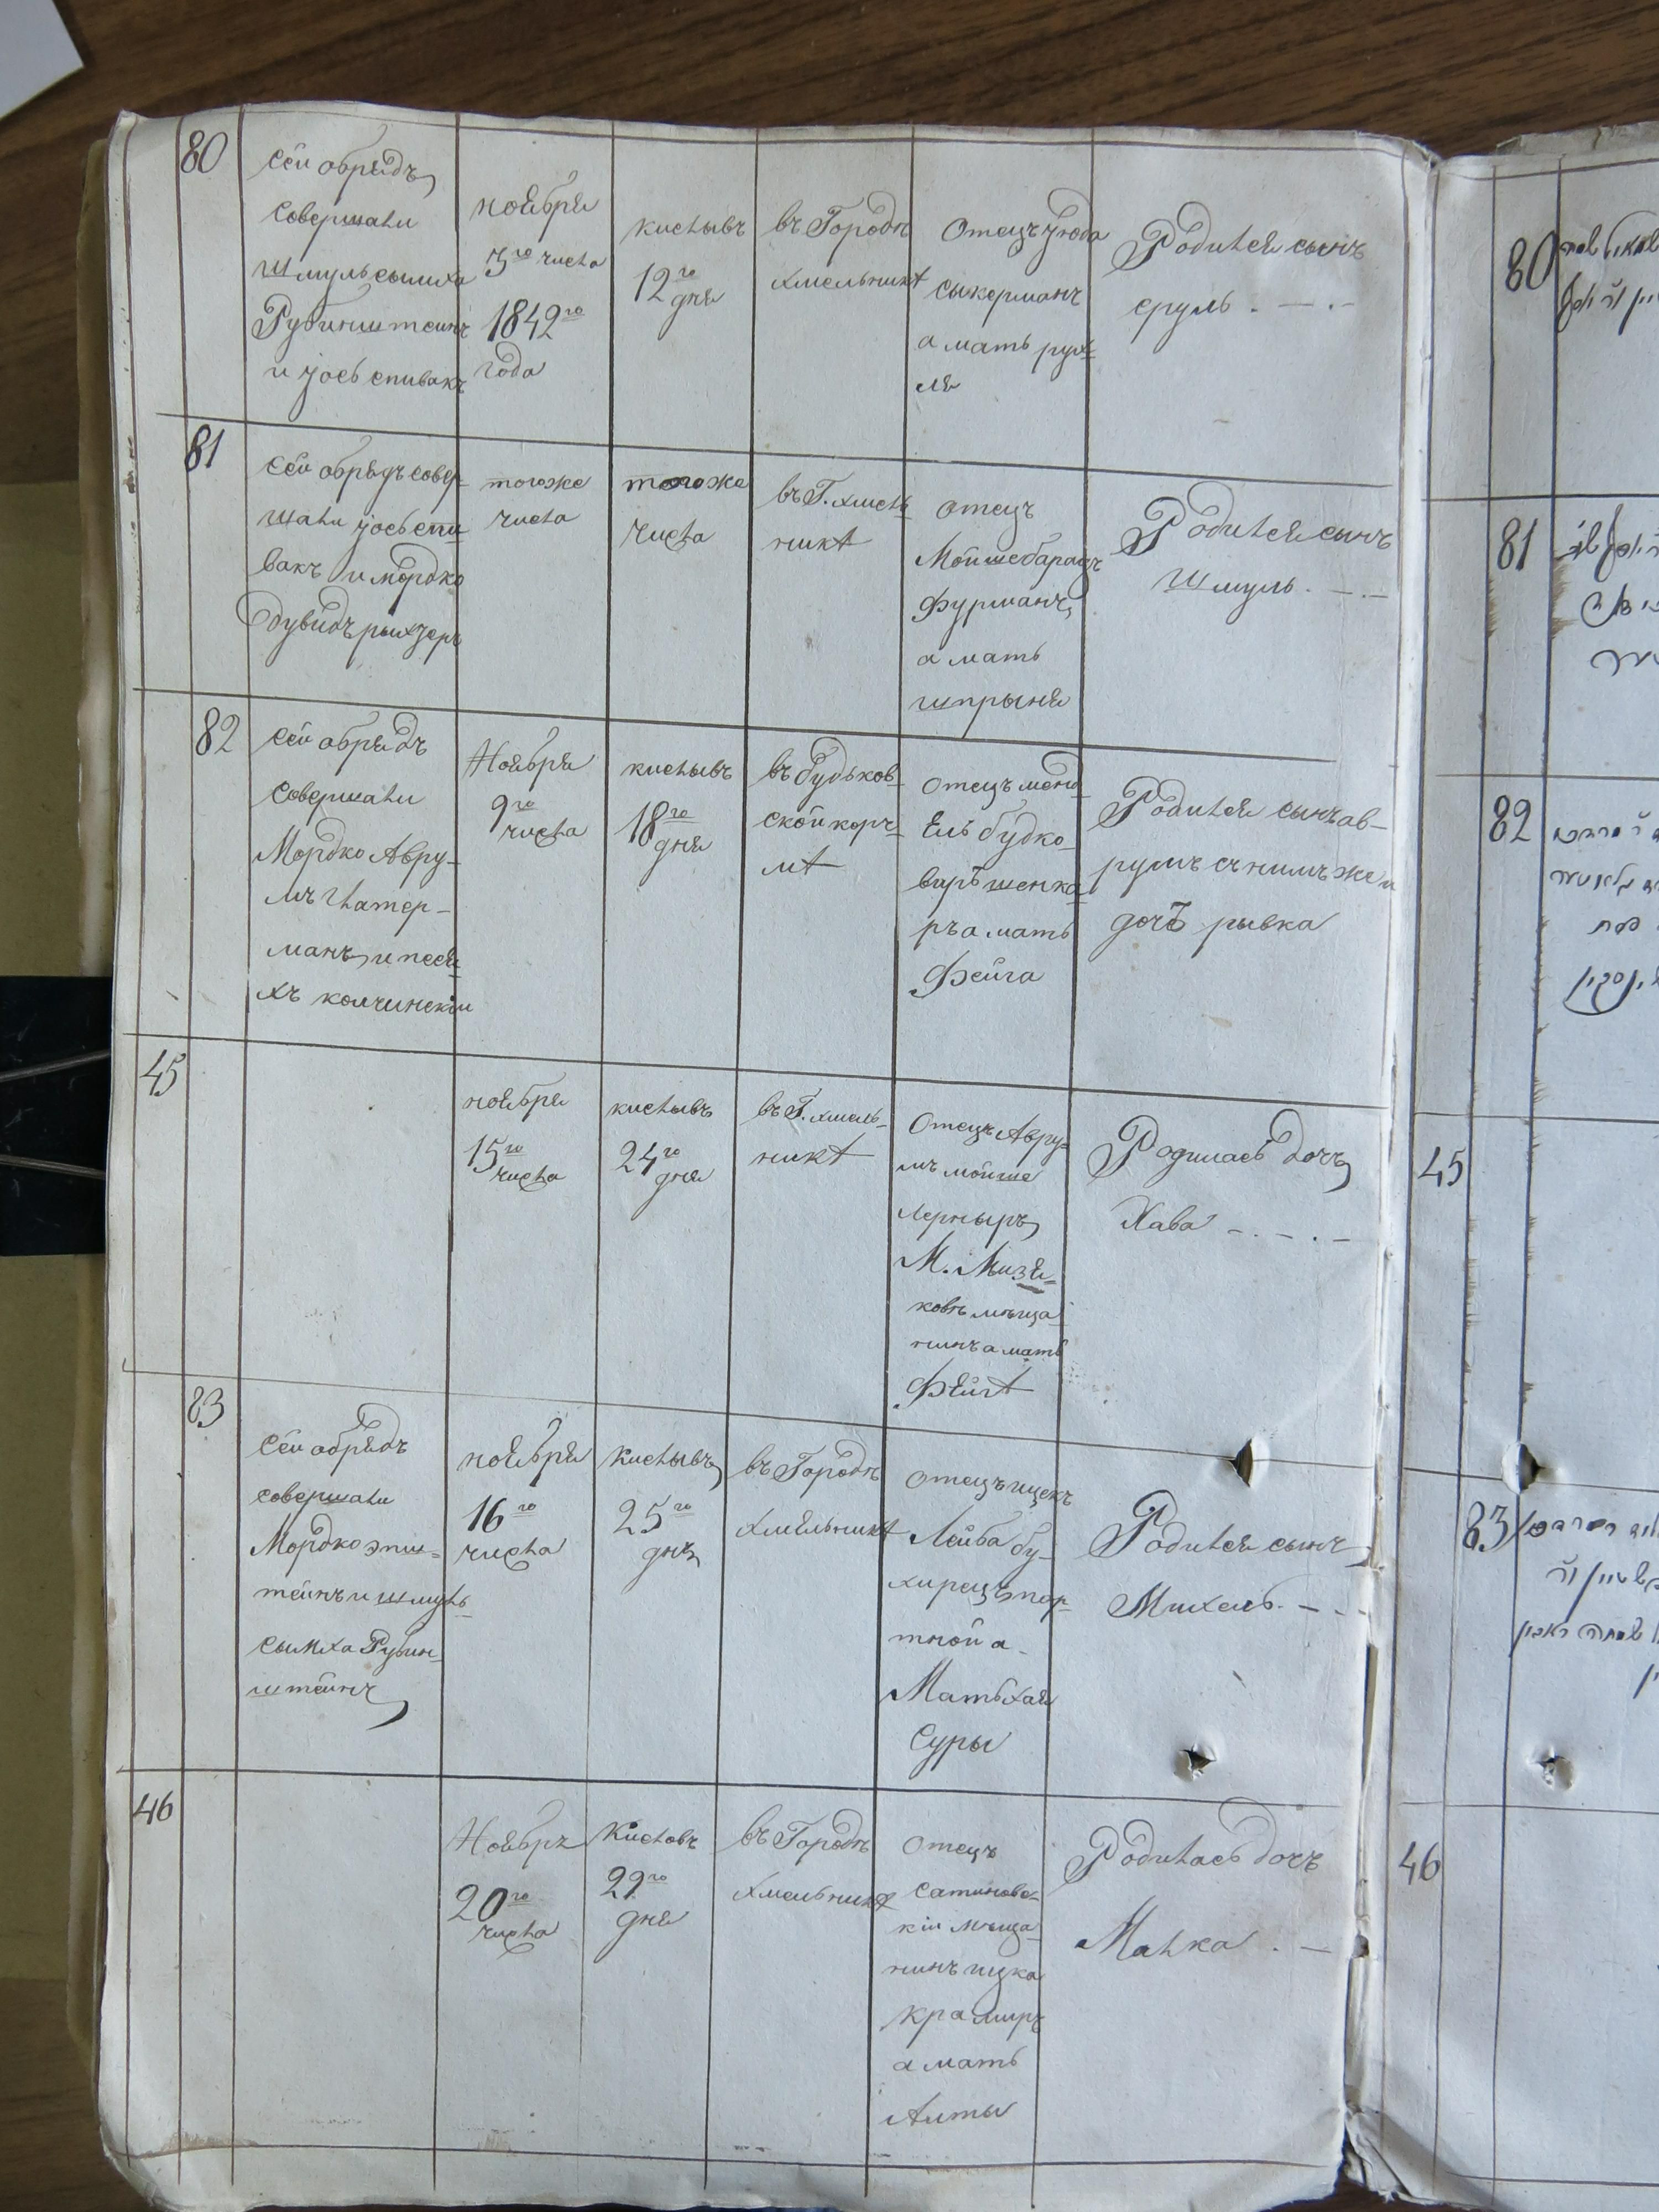 80
сей обрядъ
совершали
Шмуль сымха
Рубинштеинъ
и Іось спивакъ
ноября
3го числа
1842го
года
кислывъ
12го
дня
въ Городѣ
хмельникѣ
Отецъ Іюда
сыкерманъ
а мать рух-
ля
Родился сынъ
сруль . — . –
81
сей обрядъ совер-
шали Іось спи-
вакъ и мордко
дувидъ рыхзеръ
тогоже
числа
тогоже
числа
въ Г. хмель-
никѣ
Отецъ
Мойше барацъ
фурманъ
а мать
шпрыня
Родился сынъ
Шмуль . — . –
82
сей обрядъ
совершали
Мордко Авру-
мъ Гнатер-
манъ и песа-
хъ колчинскій
Ноября
9го
числа
кислывъ
18го
дня
въ будьков-
ской корч-
мѣ
Отецъ менд-
ель будко-
варъ шенка-
ръ а мать
Фейга
Родился сынъ ав-
румъ съ нимъ же и
дочь рывка
45
ноября
15го
числа
кислывъ
24го
дня
въ Г. хмель-
никѣ
Отецъ Авру-
мъ мойше
лерныръ
М. Мизя-
ковъ мѣща-
нинъ а мать
Фейгѣ
Родилась дочъ
Хава – . – . –
83
сей обрядъ
совершали
Мордко эпш-
тейнъ и шмуль-
сымха Рубин-
штейнъ
ноября
16го
числа
Кислывъ
25го
днъ
въ Городѣ
Хмельникѣ
Отецъ ицекъ
Лейба бу-
хирецъ пор-
тной а
Мать хая
Суры
Родился сынъ
Михель . – .
46
Ноябрь
20го
числа
Кисловъ
29го
дня
въ Городѣ
Хмельникѣ
Отецъ
сатановс-
кій мѣща-
нинъ ицка
крамиръ
а мать
Алты
Родилась дочь
Малка . –
80
81
82
45
83
46